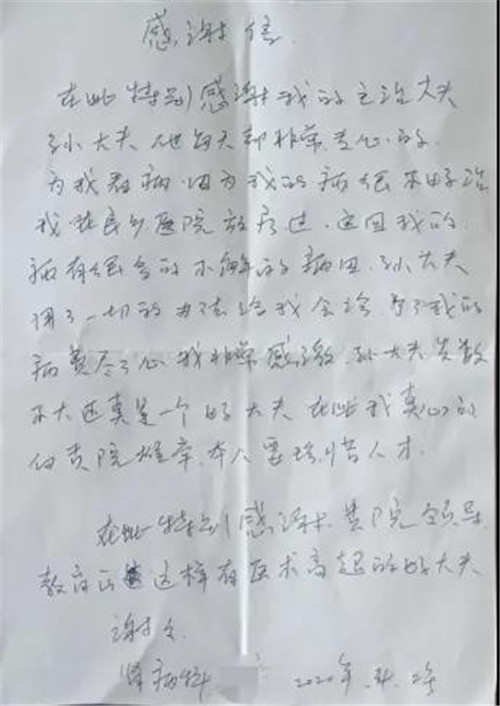 感谢信.
在此特别感谢我的主治大夫
孙大夫、他每天都非常专心的.
为我看病.因为我的病很不好治
我在良乡医院放弃过.这回我的
病有很多的不解的病因.孙大夫
用了一切的办法给我会诊 为了我的
病费尽了心 我非常感激.孙大夫岁数
不大还真是一个好大夫 在此我真心的
向贵院推荐.本人要珍惜人才.
在此特别感谢.贵院领导.
教育出 这样有医术高超的好大夫
谢谢.
肾病科. 2020年.4.